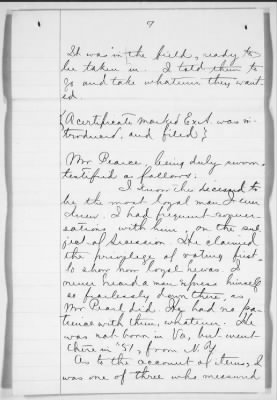 7
It was in the field, ready to
be taken in. I told them to
go and take whatever they want-
ed.
{A certificate marked Ex A. was in-
troduced, and filed}
Mr Pearce, being duly sworn
testified as follows:
I know the deceased to
be the most loyal man I ever
knew. I had frequent conver-
sations with him, on the sub-
ject of Secession. He claimed
the privilege of voting first
to show how loyal he was. I
never heard a man express himself
so fearlessly down there, as
Mr Pearl did. He had no pa-
tience with them, whatever. He
was not born in Va, but went
there in '51, from N.Y.
As to the account of items, I
was one of three who measured